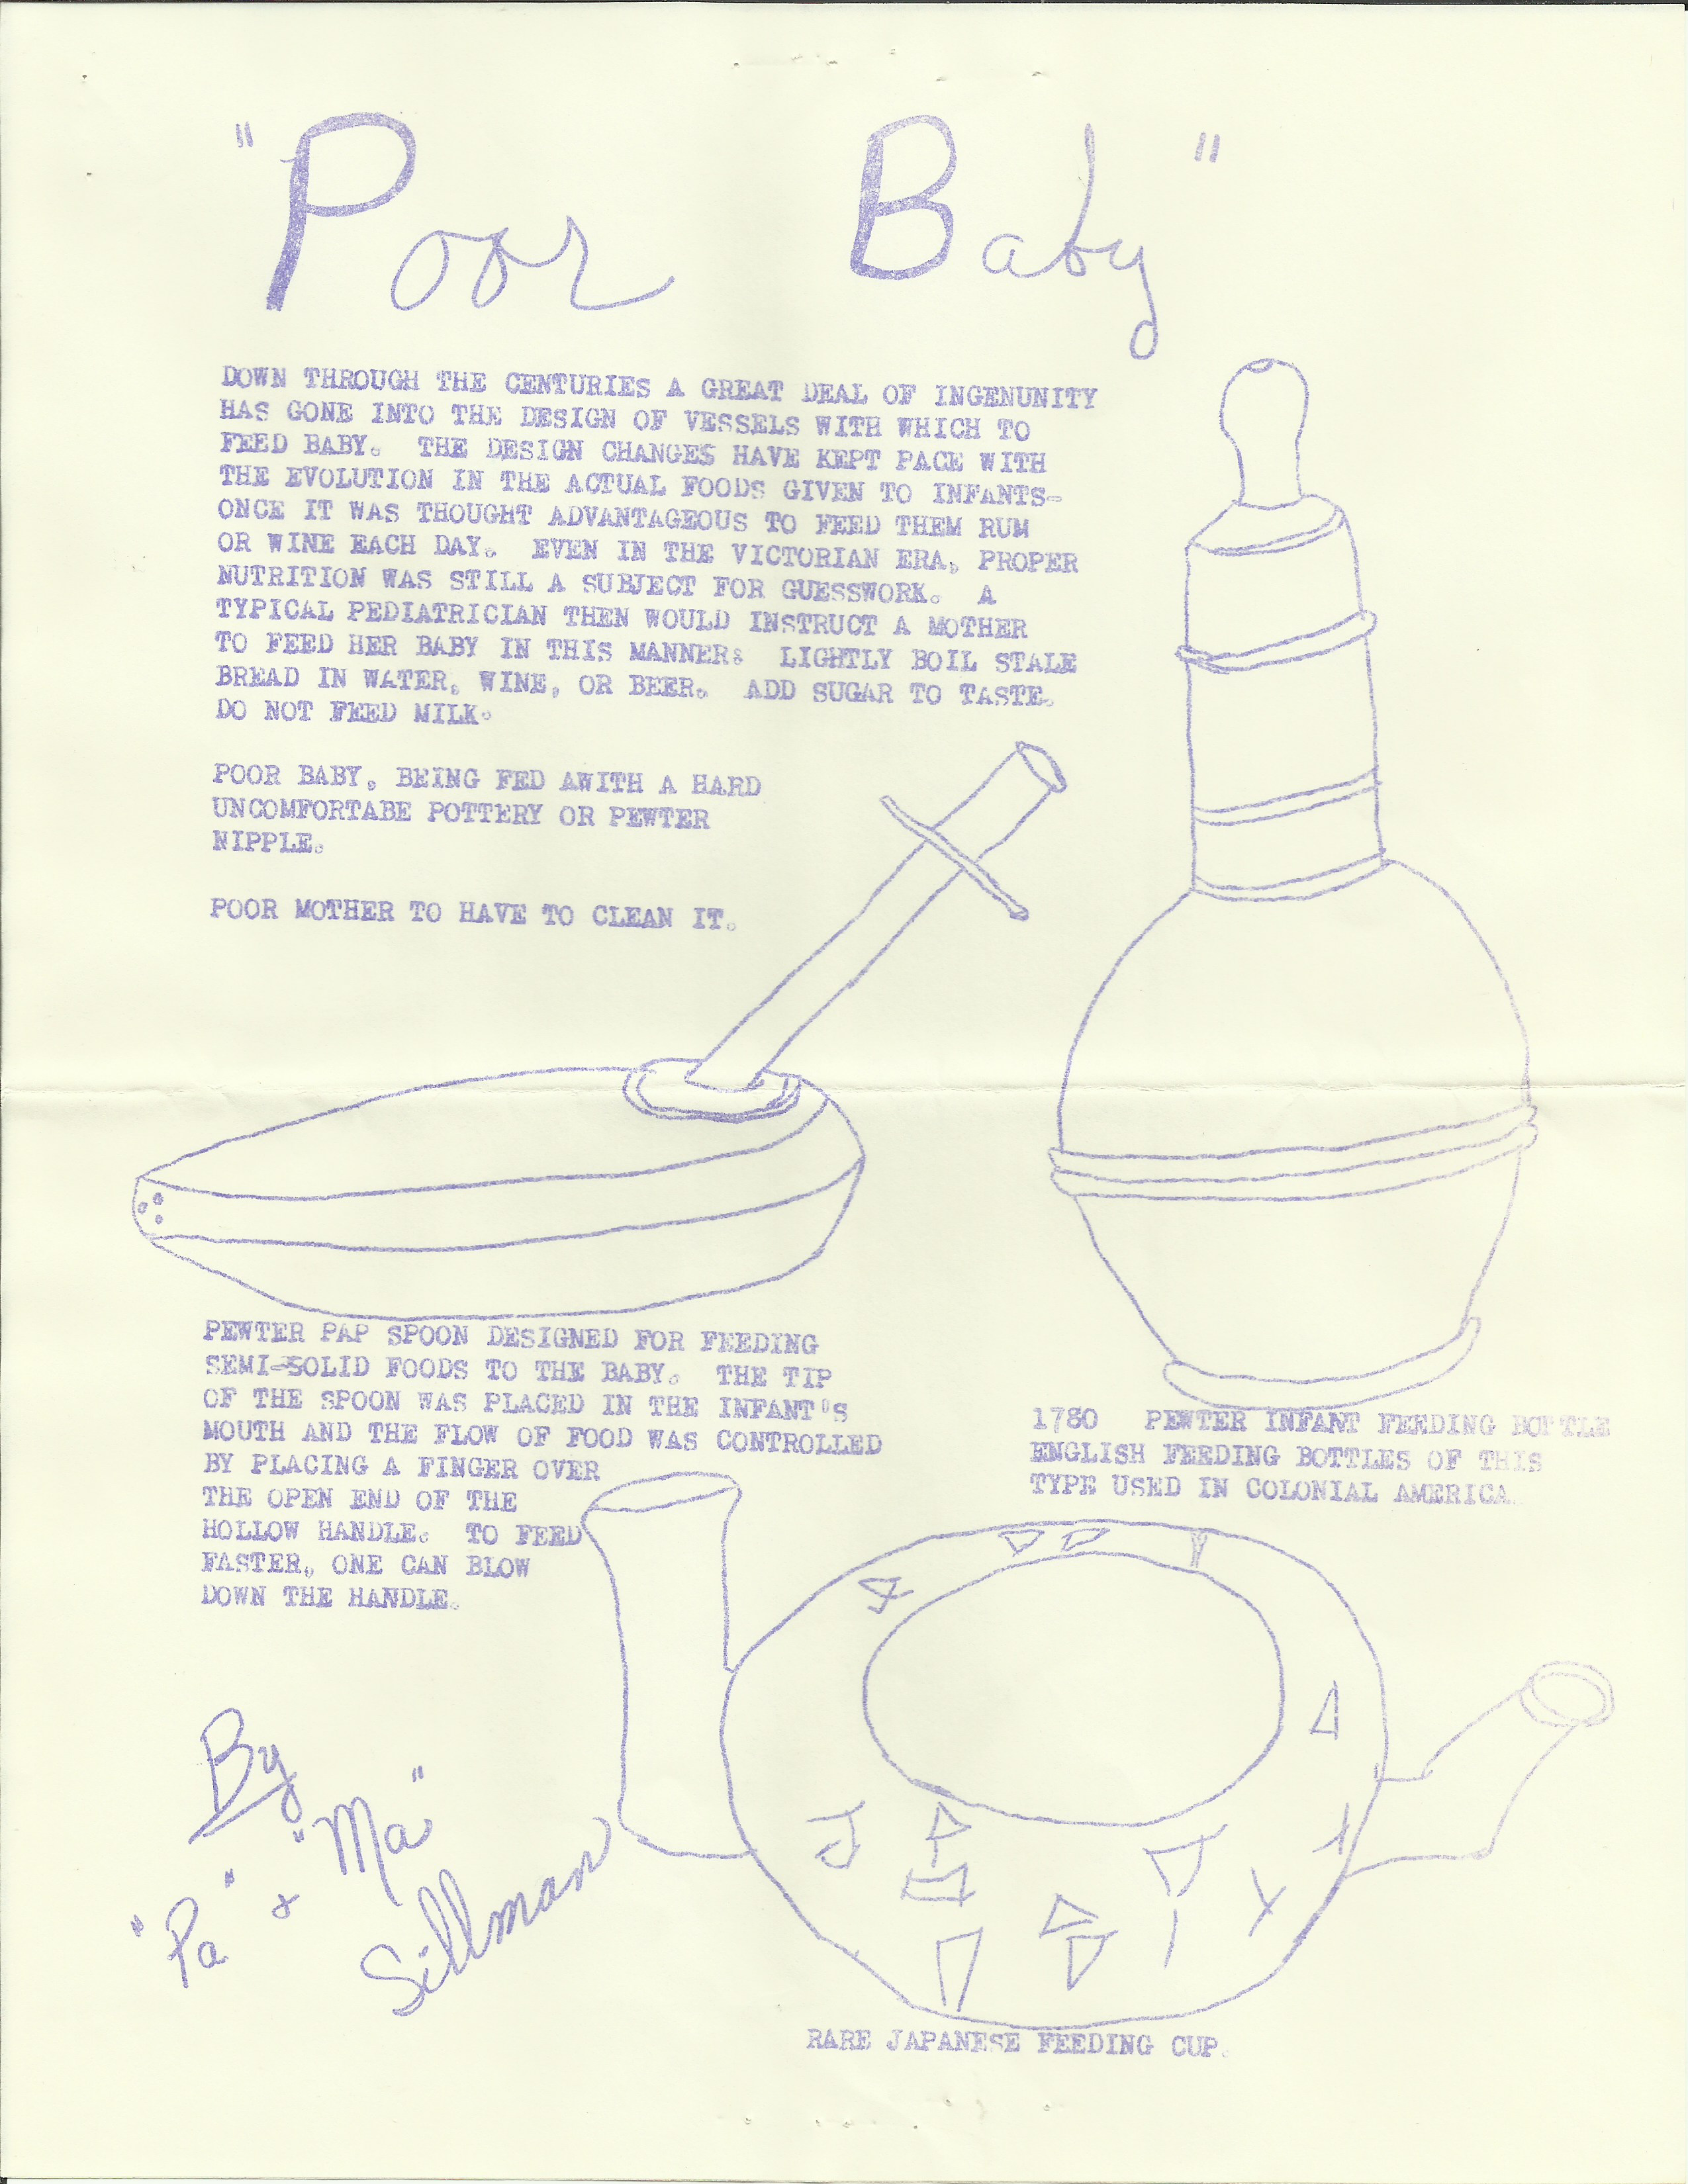 "Poor Baby"
DOWN THROUGH THE CENTURIES A GREAT DEAL OF INGENUNITY
HAS GONE INTO THE DESIGN OF VESSELS WITH WHICH TO
FEED BABY. THE DESIGN CHANGES HAVE KEPT PACE WITH
THE EVOLUTION IN THE ACTUAL FOODS GIVEN TO INFANTS-
ONCE IT WAS THOUGHT ADVANTAGEOUS TO FEED THEM RUM
OR WINE EACH DAY. EVEN IN THE VICTORIAN ERA, PROPER
NUTRITION WAS STILL A SUBJECT FOR GUESSWORK. A
TYPICAL PEDIATRICIAN THEN WOULD INSTRUCT A MOTHER
TO FEED HER BABY IN THIS MANNER: LIGHTLY BOIL STALE
BREAD IN WATER, WINE, OR BEER. ADD SUGAR TO TASTE.
DO NOT FEED MILK.
POOR BABY, BEING FED AWITH A HARD
UNCOMFORTABE POTTERY OR PEWTER
NIPPLE.
POOR MOTHER TO HAVE TO CLEAN IT.
PEWTER PAP SPOON DESIGNED FOR FEEDING
SEMI-SOLID FOODS TO THE BABY. THE TIP
OF THE SPOON WAS PLACED IN THE INFANT'S
MOUTH AND THE FLOW OF FOOD WAS CONTROLLED
BY PLACING A FINGER OVER
THE OPEN END OF THE
HOLLOW HANDLE. TO FEED
FASTER, ONE CAN BLOW
DOWN THE HANDLE.
1780 PEWTER INFANT FEEDING BOTTLE
ENGLISH FEEDING BOTTLES OF THIS
TYPE USED IN COLONIAL AMERICA.
By
"Pa" & "Ma"
Sillman
RARE JAPANESE FEEDING CUP.